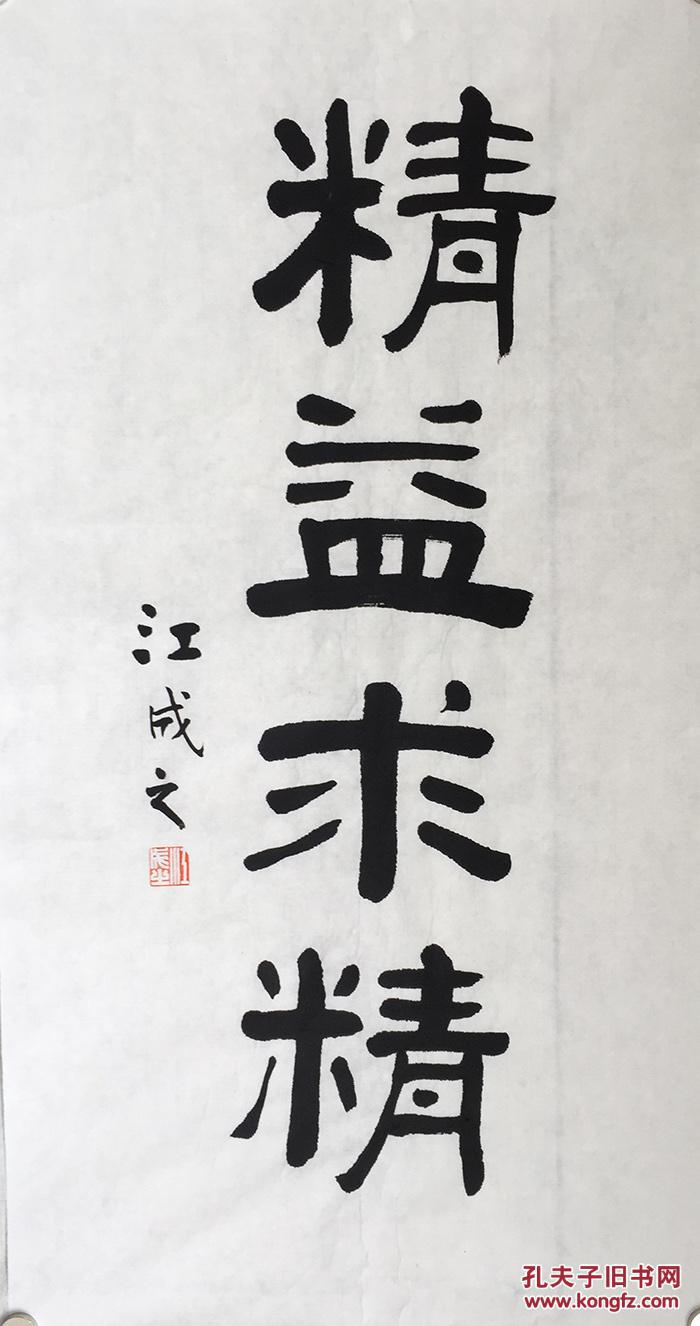 精益求精
江成之
江成之
孔夫子旧书网
www.kongfz.com